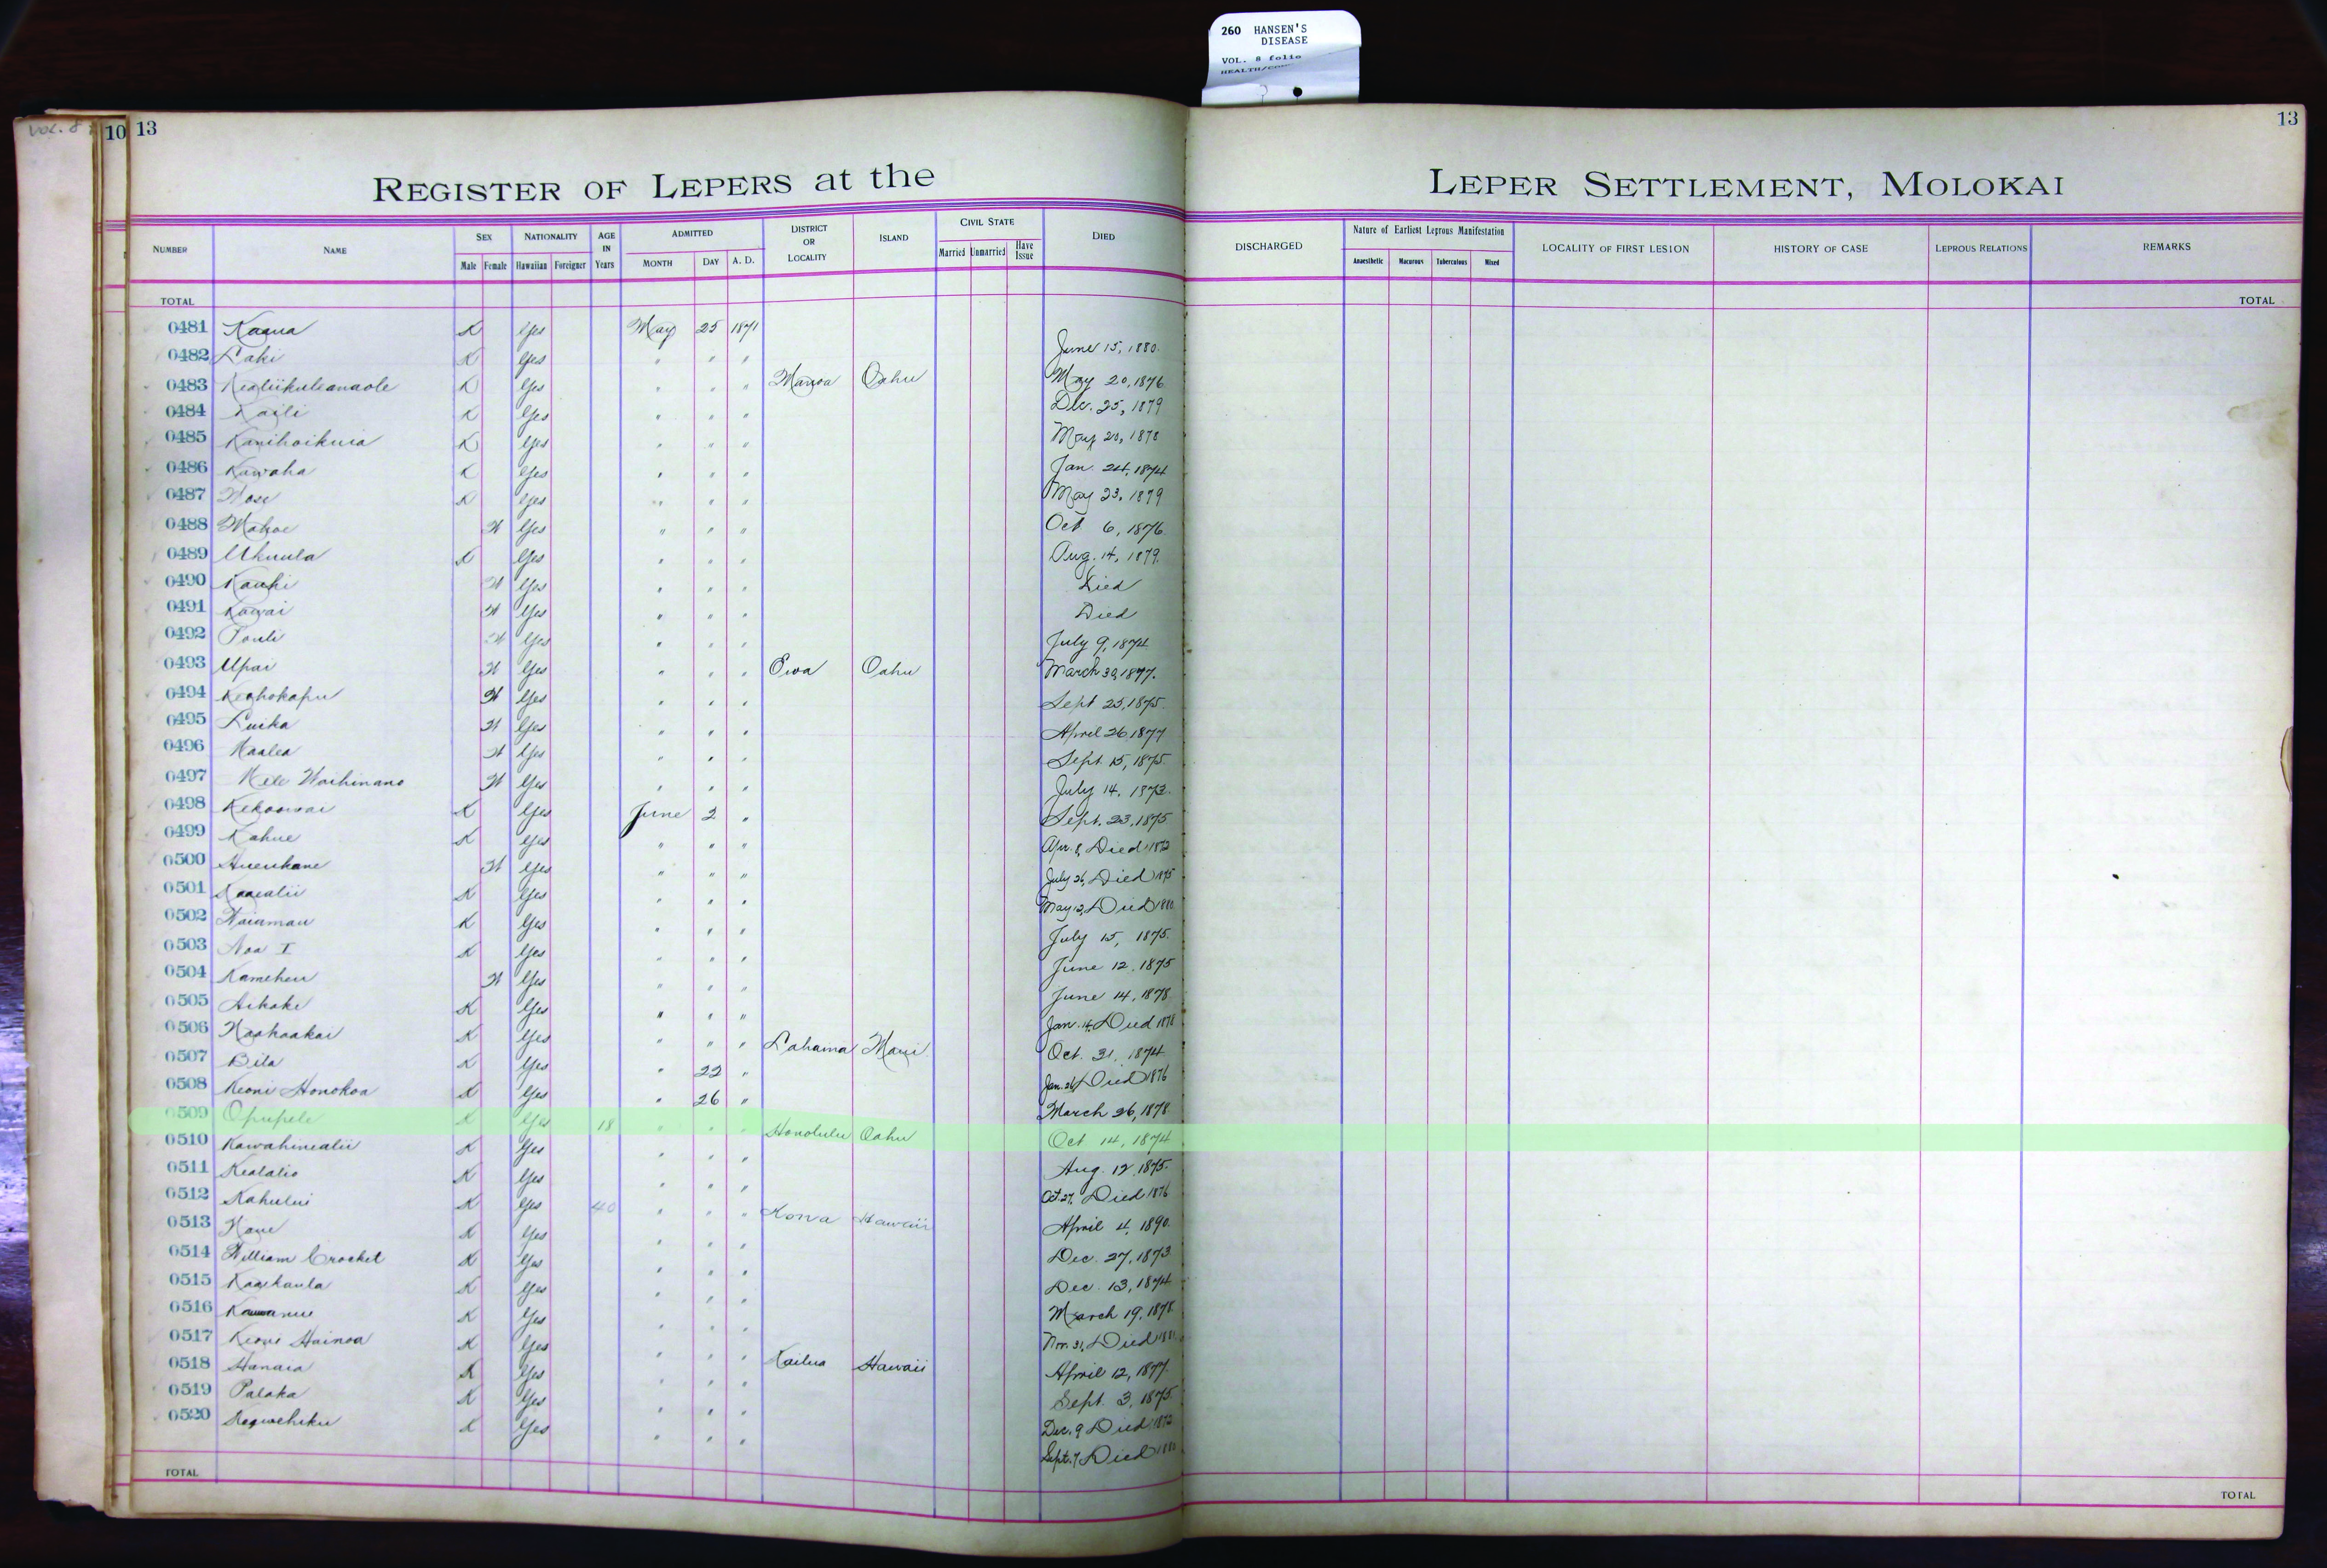 260 HANSEN'S
DISEASE
VOL. 8 folio
VOL. 8
10 13
13
REGISTER OF LEPERS at the LEPER SETTLEMENT, MOLOKAI
NUMBER NAME SEX Male Female NATIONALITY Hawaiian Foreigner AGE IN Years ADMITTED MONTH DAY A. D. DISTRICT OR LOCALITY ISLAND CIVIL STATE Married Unmarried Have Issue DIED DISCHARGED Nature of Earliest Leprous Manifestation Anaesthetic Macurous Tuberculous Mixed LOCALITY OF FIRST LESION HISTORY OF CASE LEPROUS RELATIONS REMARKS
TOTAL TOTAL
0481 Kaaua K Yes May 25 1871
0482 Laki K Yes " " " June 15, 1880.
0483 Kealiikuleanaole K Yes " " " Manoa Oahu May 20, 1876
0484 Kaili K Yes " " " Dec. 25, 1879
0485 Kanihoikuia K Yes " " " May 20, 1878
0486 Kawaha K Yes " " " Jan. 24, 1874
0487 K Yes " " " May 23, 1879
0488 Mahoe W Yes " " " Oct 6, 1876.
0489 Ukuula K Yes " " " Aug. 14, 1879.
0490 Kauhi W Yes " " " Died
0491 Kawai W Yes " " " Died
0492 Pauli W Yes " " " July 9, 1874
0493 Upai W Yes " " " Ewa Oahu March 30, 1877.
0494 Keahokapu W Yes " " " Sept 25, 1875.
0495 Luika W Yes " " " April 26 1877
0496 Maalea W Yes " " " Sept. 15, 1875.
0497 Mele Waihinano W Yes " " " July 14, 1873.
0498 Kekoowai K Yes June 2 " Sept. 23, 1875
0499 Kahue K Yes " " " Apr. 8, Died 1872
0500 Hueukane W Yes " " " July 26, Died 1875
0501 Kaaealii K Yes " " " May 12, Died 1880
0502 Naiamau K Yes " " " July 15, 1875.
0503 Noa I K Yes " " " June 12, 1875
0504 Kameheu W Yes " " " June 14, 1878
0505 Aikake K Yes " " " Jan. 14, Died 1878
0506 Naohaakai K Yes " " " Lahaina Maui Oct. 31, 1874
0507 Bila K Yes " 22 " Jan. 26, Died 1876
0508 Keoni Honokoa K Yes " 26 " March 26, 1878
0509 Opupele K Yes 18 " " " Honolulu Oahu Oct 14, 1874
0510 Kawahinealii K Yes " " " Aug. 12, 1875.
0511 Kealalio K Yes " " " Oct. 27, Died 1876
0512 Kahului K Yes 40 " " " Kona Hawaii April 4, 1890.
0513 Naue K Yes " " " Dec. 27, 1873.
0514 William Crocket K Yes " " " Dec. 13, 1874
0515 Kaaikaula K Yes " " " March 19, 1878
0516 K Yes " " " Nov. 31, Died 1881
0517 Keoni Hainoa K Yes " " " Kailua Hawaii April 12, 1877.
0518 Hanaia K Yes " " " Sept. 3, 1875.
0519 Palaka K Yes " " " Dec. 9 Died 1872
0520 K Yes " " " Sept. 7, Died 1880
TOTAL TOTAL